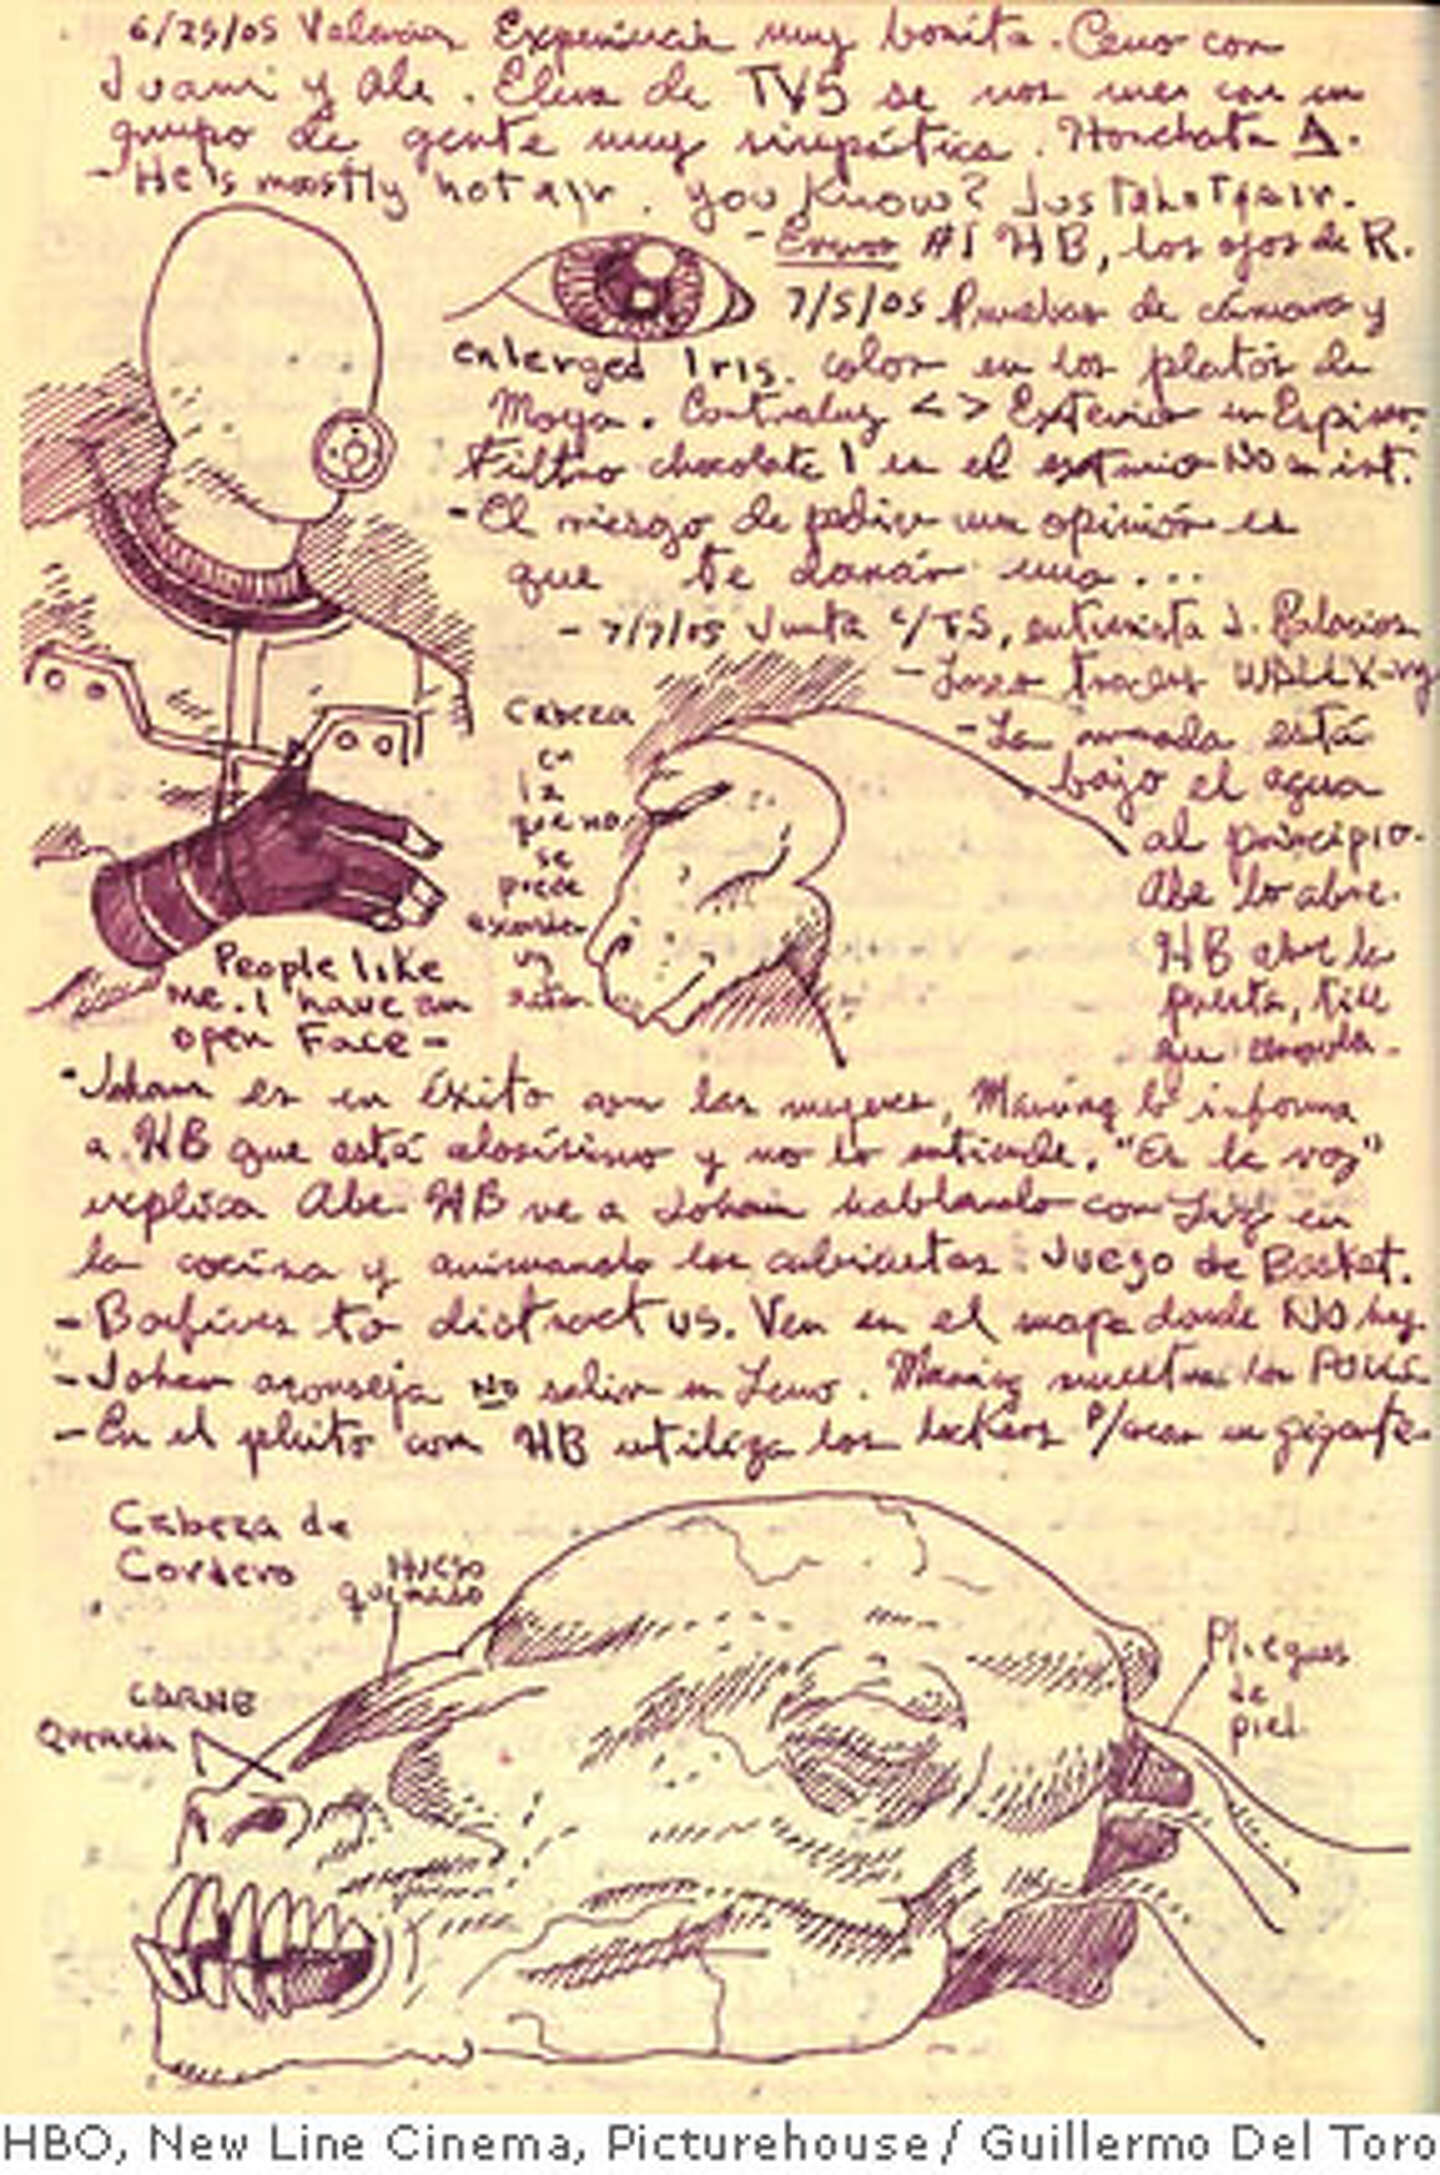 6/25/05 Valencia Experiencia muy bonita. Ceno con
Juani y Ale. Elena de TV5 se nos une con un
grupo de gente muy simpática. Horchata A.
- He's mostly hot air. You know? Just a hot air.
- Error #1 HB, los ojos de R.
enlarged Iris.
7/5/05 Pruebas de cámara y
color en los platós de
Moya. Contraluz < > Exterior en Espinar.
Filtro chocolate 1 en el exterior NO en int.
- El riesgo de pedir una opinión es
que te darán una...
- 7/7/05 Junta c/TS, entrevista J. Palacios
Cabeza
en
la
que no
se
puede
esconder
un
actor
- La morada está
bajo el agua
al principio.
Abe lo abre.
HB abre la
puerta,
People like
me. I have an
open Face -
- Johann es un éxito con las mujeres, Manning lo informa
a HB que está celosísimo y no lo entiende. "Es la voz"
explica Abe. HB ve a Johann hablando con Liz en
la cocina y animando los cubiertos. Juego de Basket.
- to distract us. Ven en el mapa donde NO hay
- Johann aconseja NO salir en Manning muestra los
- En el pleito con HB utiliza los lockers p/crear un gigante
Cabeza de
Cordero
Hueso
quemado
CARNE
Quemada
Pliegues
de
piel
HBO, New Line Cinema, Picturehouse / Guillermo Del Toro